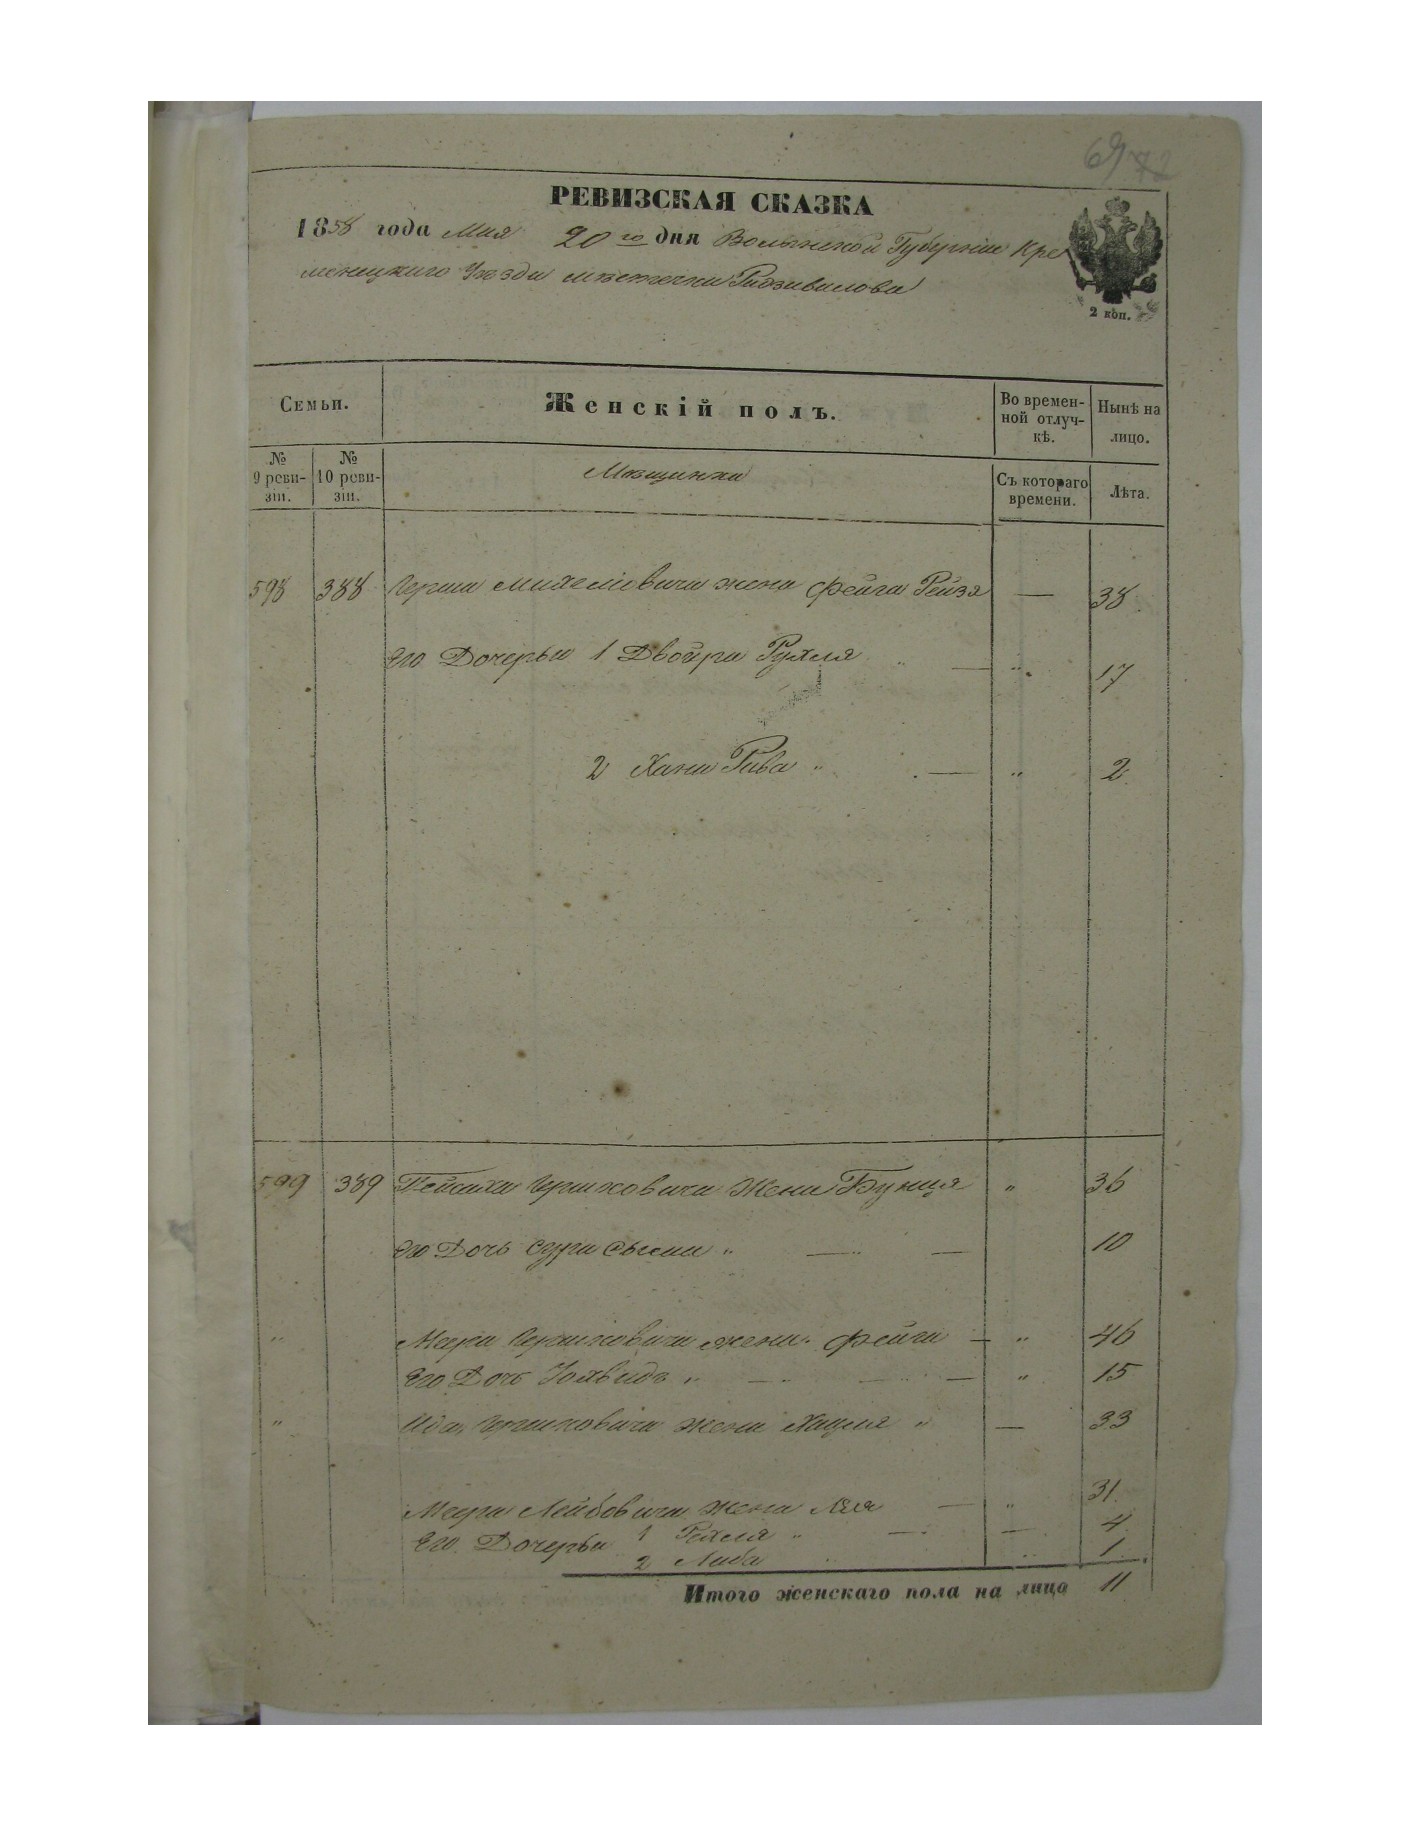 69 72
РЕВИЗСКАЯ СКАЗКА
1858 года Мая 20го дня Волынской Губернии Кре
менецкаго Уезда местечка Радзивилова
2 коп.
Семьи. Женскій полъ. Во времен-ной отлуч-кѣ. Нынѣ на лицо.
№ 9 реви-зіи. № 10 реви-зіи. Мещанки Съ котораго времени. Лѣта.
598 388 Герша Михелiовича жена Фейга Рейзя — 38
Его Дочерьи 1 Двойра Рухля „ — „ 17
2 Хана Рива „ — „ 2
599 389 Гершковича Жена Бунця „ 36
Его Дочь Сура „ — „ — 10
„ Меера Гершковича жена Фейга — „ 46
Его Дочь „ — „ — „ — „ 15
„ Гершковича Жена Хацля „ — 33
Меера Лейбовича Жена Лея — „ 31
Его Дочерьи 1 Рехля „ — — 4
2 Либа „ „ 1
Итого женскаго пола на лицо 11